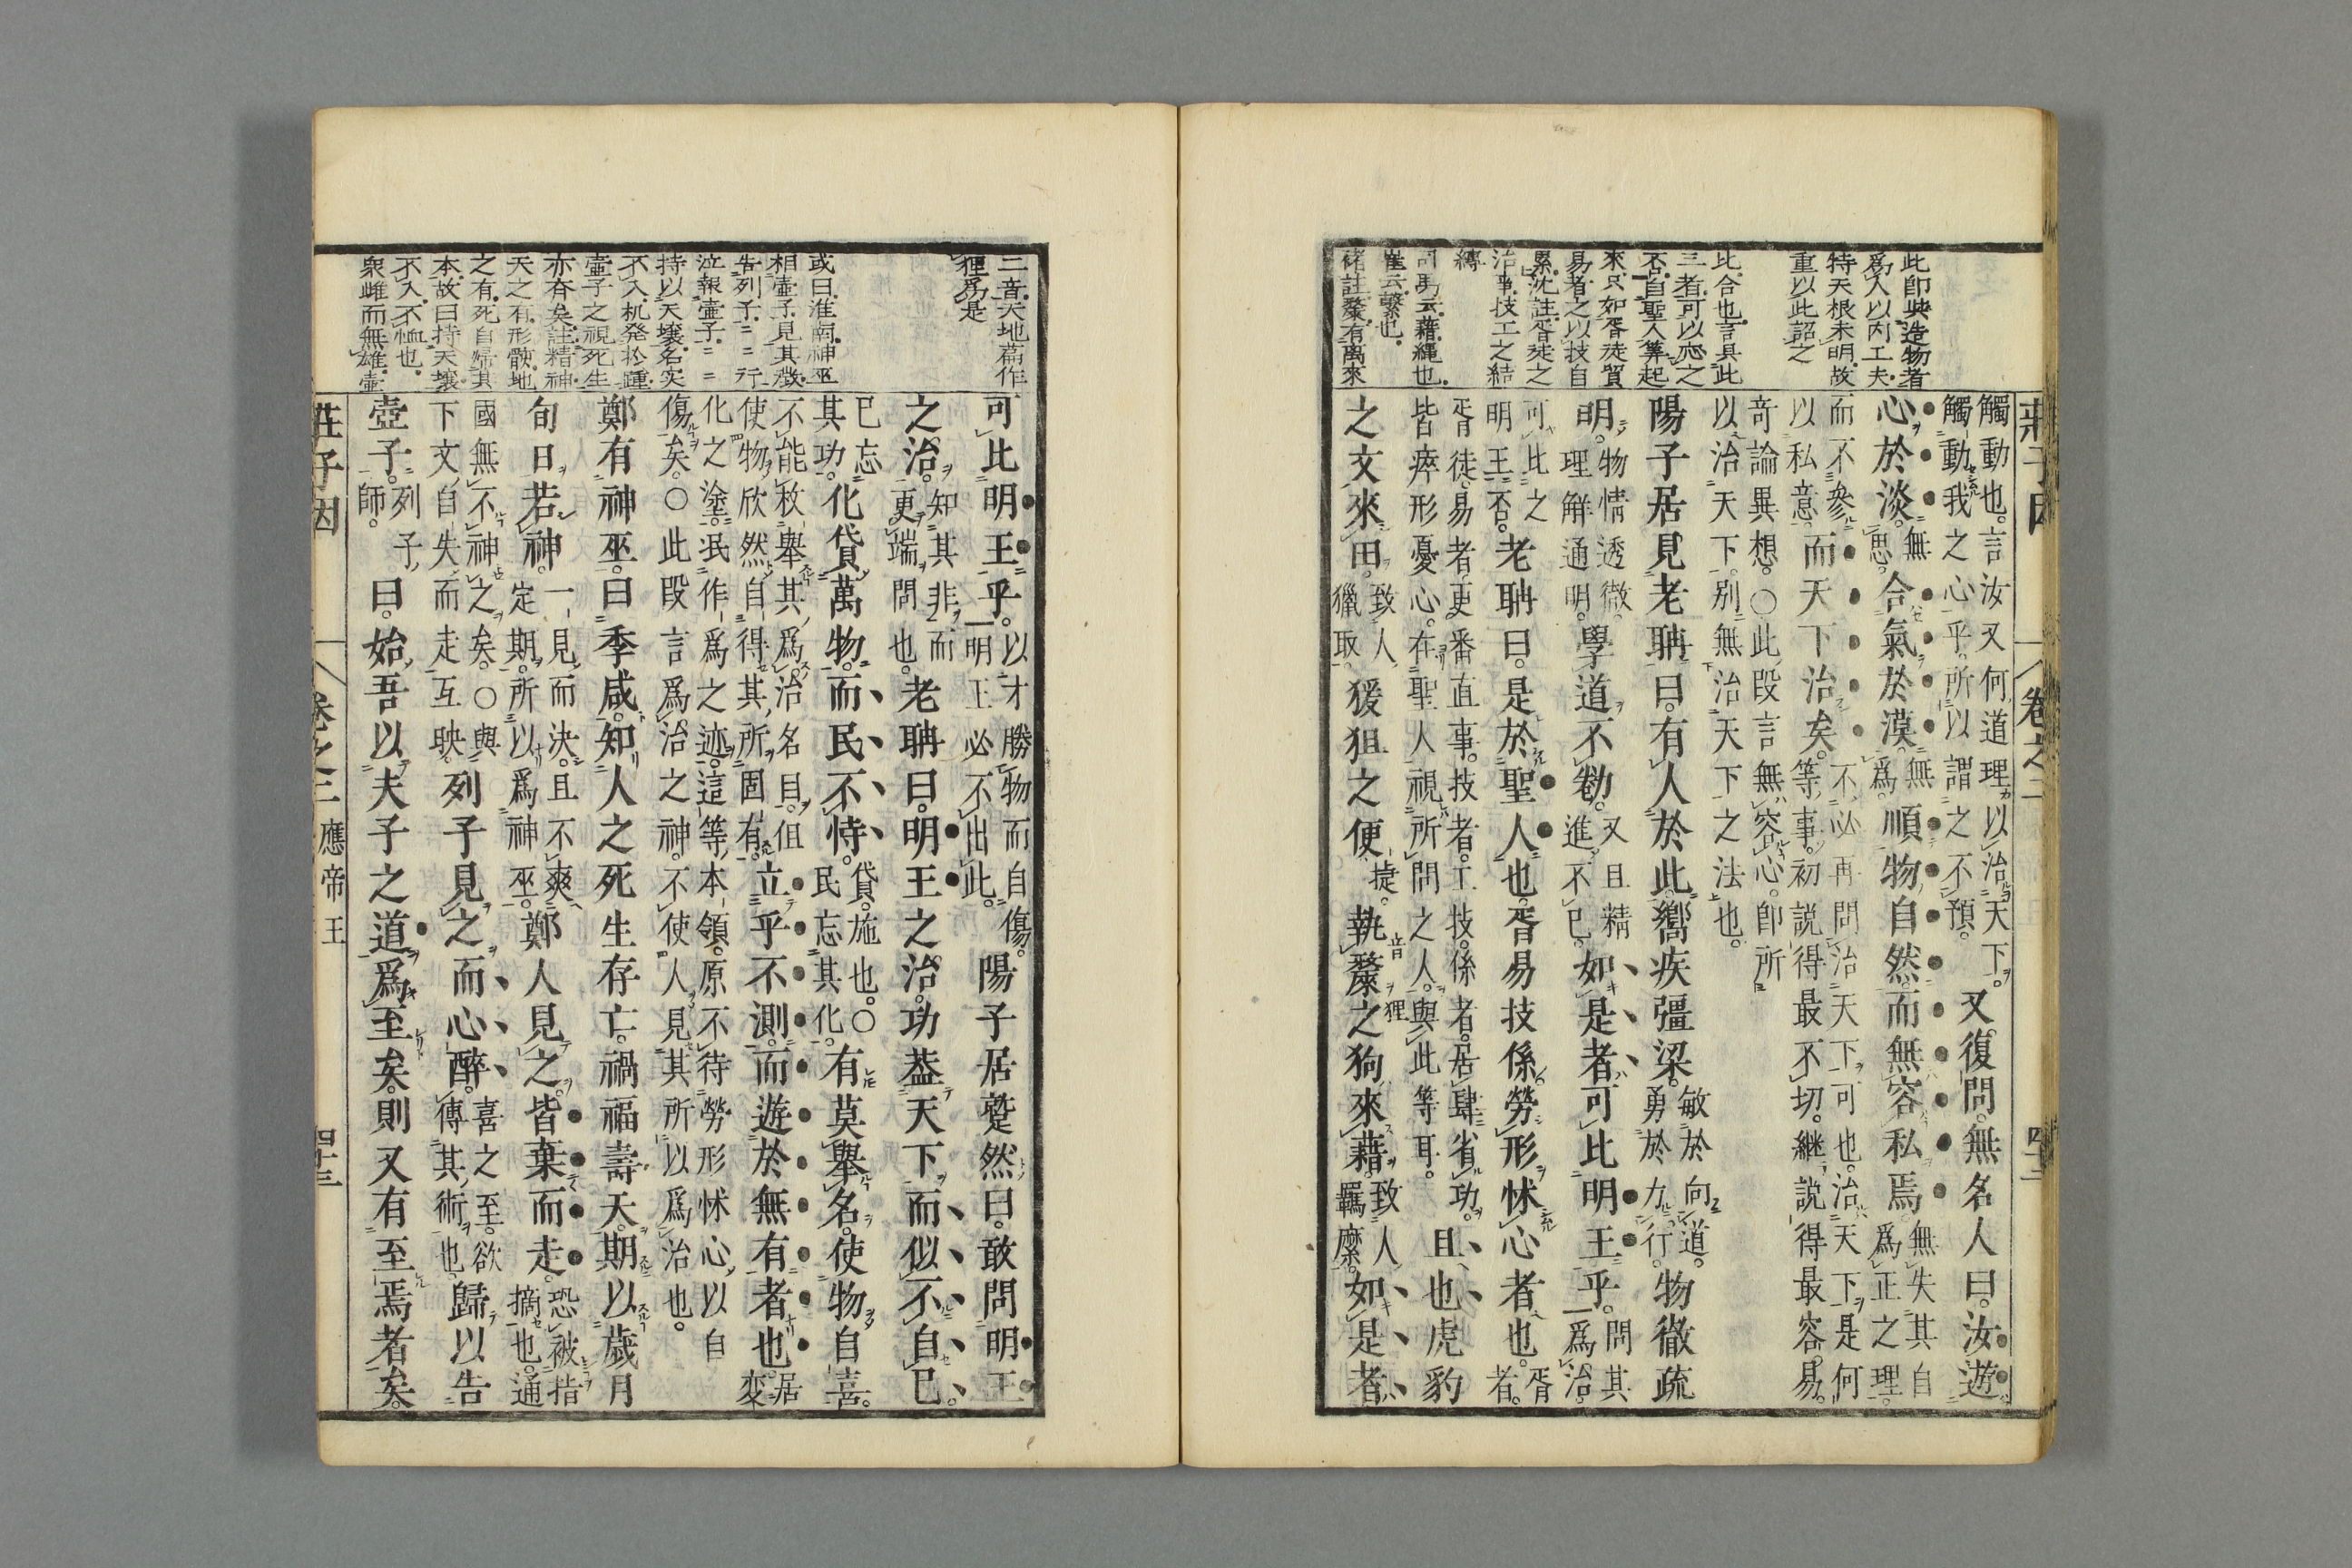 此卽與造物者
爲人以內工夫
特天根未明故
重以此詔之
此合也言具此
三者可以応之
否自聖人算起
來只如胥徒質
易者之以技自
累沈註胥徒之
治事技工之結
縛
司馬云藉繩也
崔云繫也
褚註斄有离來
觸動也言汝又何道理以治天下
觸動我之心乎所以謂之不預
又復問無名人曰汝遊
心於淡
無思
合氣於漠
無爲
順物自然而無容私焉
無失其自
爲正之理
而不參
以私意
而天下治矣
不必再問治天下可也治天下是何
等事初説得最不切継説得最容易
奇論異想○此段言無容心卽所
以治天下别無治天下之法也
陽子居見老聃曰有人於此嚮疾彊梁
敏於向道
勇於力行
物徹疏
明
物情透徹
理解通明
學道不勌
又且精
進不已
如是者可比明王乎
問其
爲治
可比之
明王否
老聃曰是於聖人也胥易技係勞形怵心者也
胥
者
胥徒易者更番直事技者工技係者居肆省功
皆瘁形憂心在聖人視所問之人與此等耳
且也虎豹
之文來田
致人
獵取
猨狙之便
捷
執斄
音狸
之狗來藉
致人
羈縻
如是者
莊子因
卷之二
四十二
二音天地篇作
狸爲是
或曰淮南神巫
相壺子見其徵
告列子列子行
泣報壺子壺子
持以天壤名实
不入机発於踵
壷子之視死生
亦斉矣註精神
天之有形骸地
之有死自帰其
本故曰持天壤
不入不恤也
衆雌而無雄壷
可比明王乎
以才勝物而自傷
明王必不出此
陽子居蹵然曰敢問明王
之治
知其非而
更端問也
老聃曰明王之治功葢天下而似不自已
已忘
其功
化貸萬物而民不恃
貸施也○
民忘其化
有莫舉名使物自喜
不能枚舉其爲治名目但
使物欣然自得其所固有
立乎不測而遊於無有者也
居
來
化之塗泯作爲之迹這等本領原不待勞形怵心以自
傷矣○此段言爲治之神不使人見其所以爲治也
鄭有神巫曰季咸知人之死生存亡禍福壽夭期以歲月
旬日若神
一見而決且不爽
定期所以爲神巫
鄭人見之皆棄而走
恐被指
摘也通
國無不神之矣○與
下文自失而走互映
列子見之而心醉
喜之至欲
傳其術也
歸以告
壺子
列子
師
曰始吾以夫子之道爲至矣則又有至焉者矣
莊子因
卷之二
應帝王
四十三